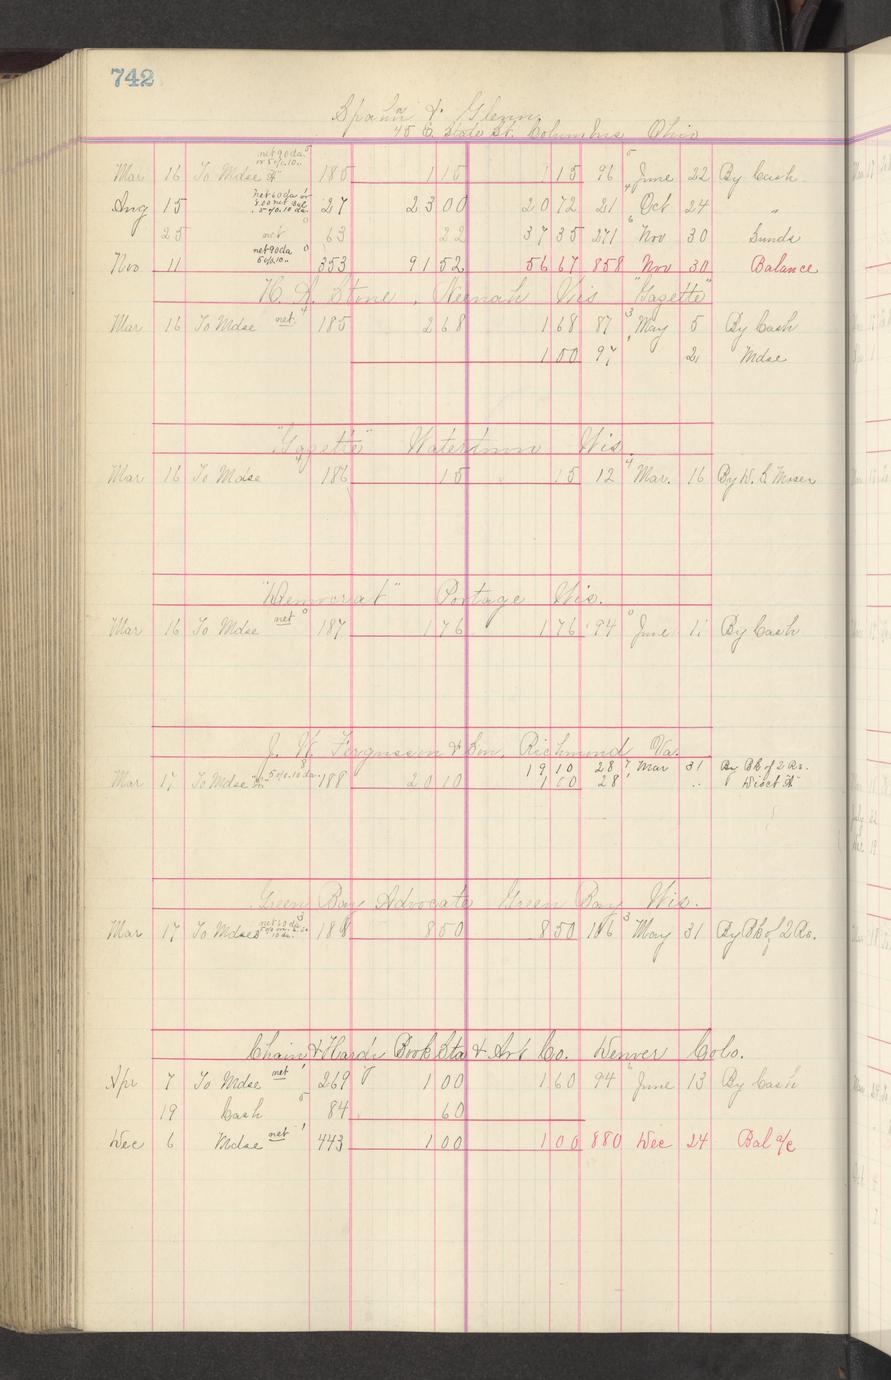 742
Spahr & Glenn
45 E. State St. Columbus Ohio
Mar 16 To Mdse net 90 da. or 5% 10 185 1 15 1 15 96 June 22 By Cash
Aug 15 net 60 da or 27 23 00 20 72 21 Oct 24 "
25 net 63 22 37 35 271 Nov 30 Sunds
Nov 11 net 90 da 5% 10 353 91 52 56 67 858 Nov 30 Balance
H. A. Stone, Neenah Wis "Gazette"
Mar 16 To Mdse net 185 2 68 1 68 87 May 5 By Cash
1 00 97 2 Mdse
"Gazette" Watertown Wis.
Mar 16 To Mdse 186 15 15 12 Mar. 16 By W. L. Moser
"Democrat" Portage Wis.
Mar 16 To Mdse net 187 1 76 1 76 94 June 11 By Cash
J. W. Fergusson & Son, Richmond Va.
19 10 28 Mar 31 By Bk of 2 Rs.
Mar 17 To Mdse 5% 10 da. 188 20 10 1 00 28 " Disct
Green Bay Advocate Green Bay Wis.
Mar 17 To Mdse net 60 da 188 8 50 8 50 106 May 31 By Bk of 2 Rs.
Chain & Hardy Book Sta & Art Co. Denver Colo.
Apr 7 To Mdse net 269 1 00 1 60 94 June 13 By Cash
19 Cash 84 60
Dec 6 Mdse net 443 1 00 1 00 880 Dec 24 Bal a/c